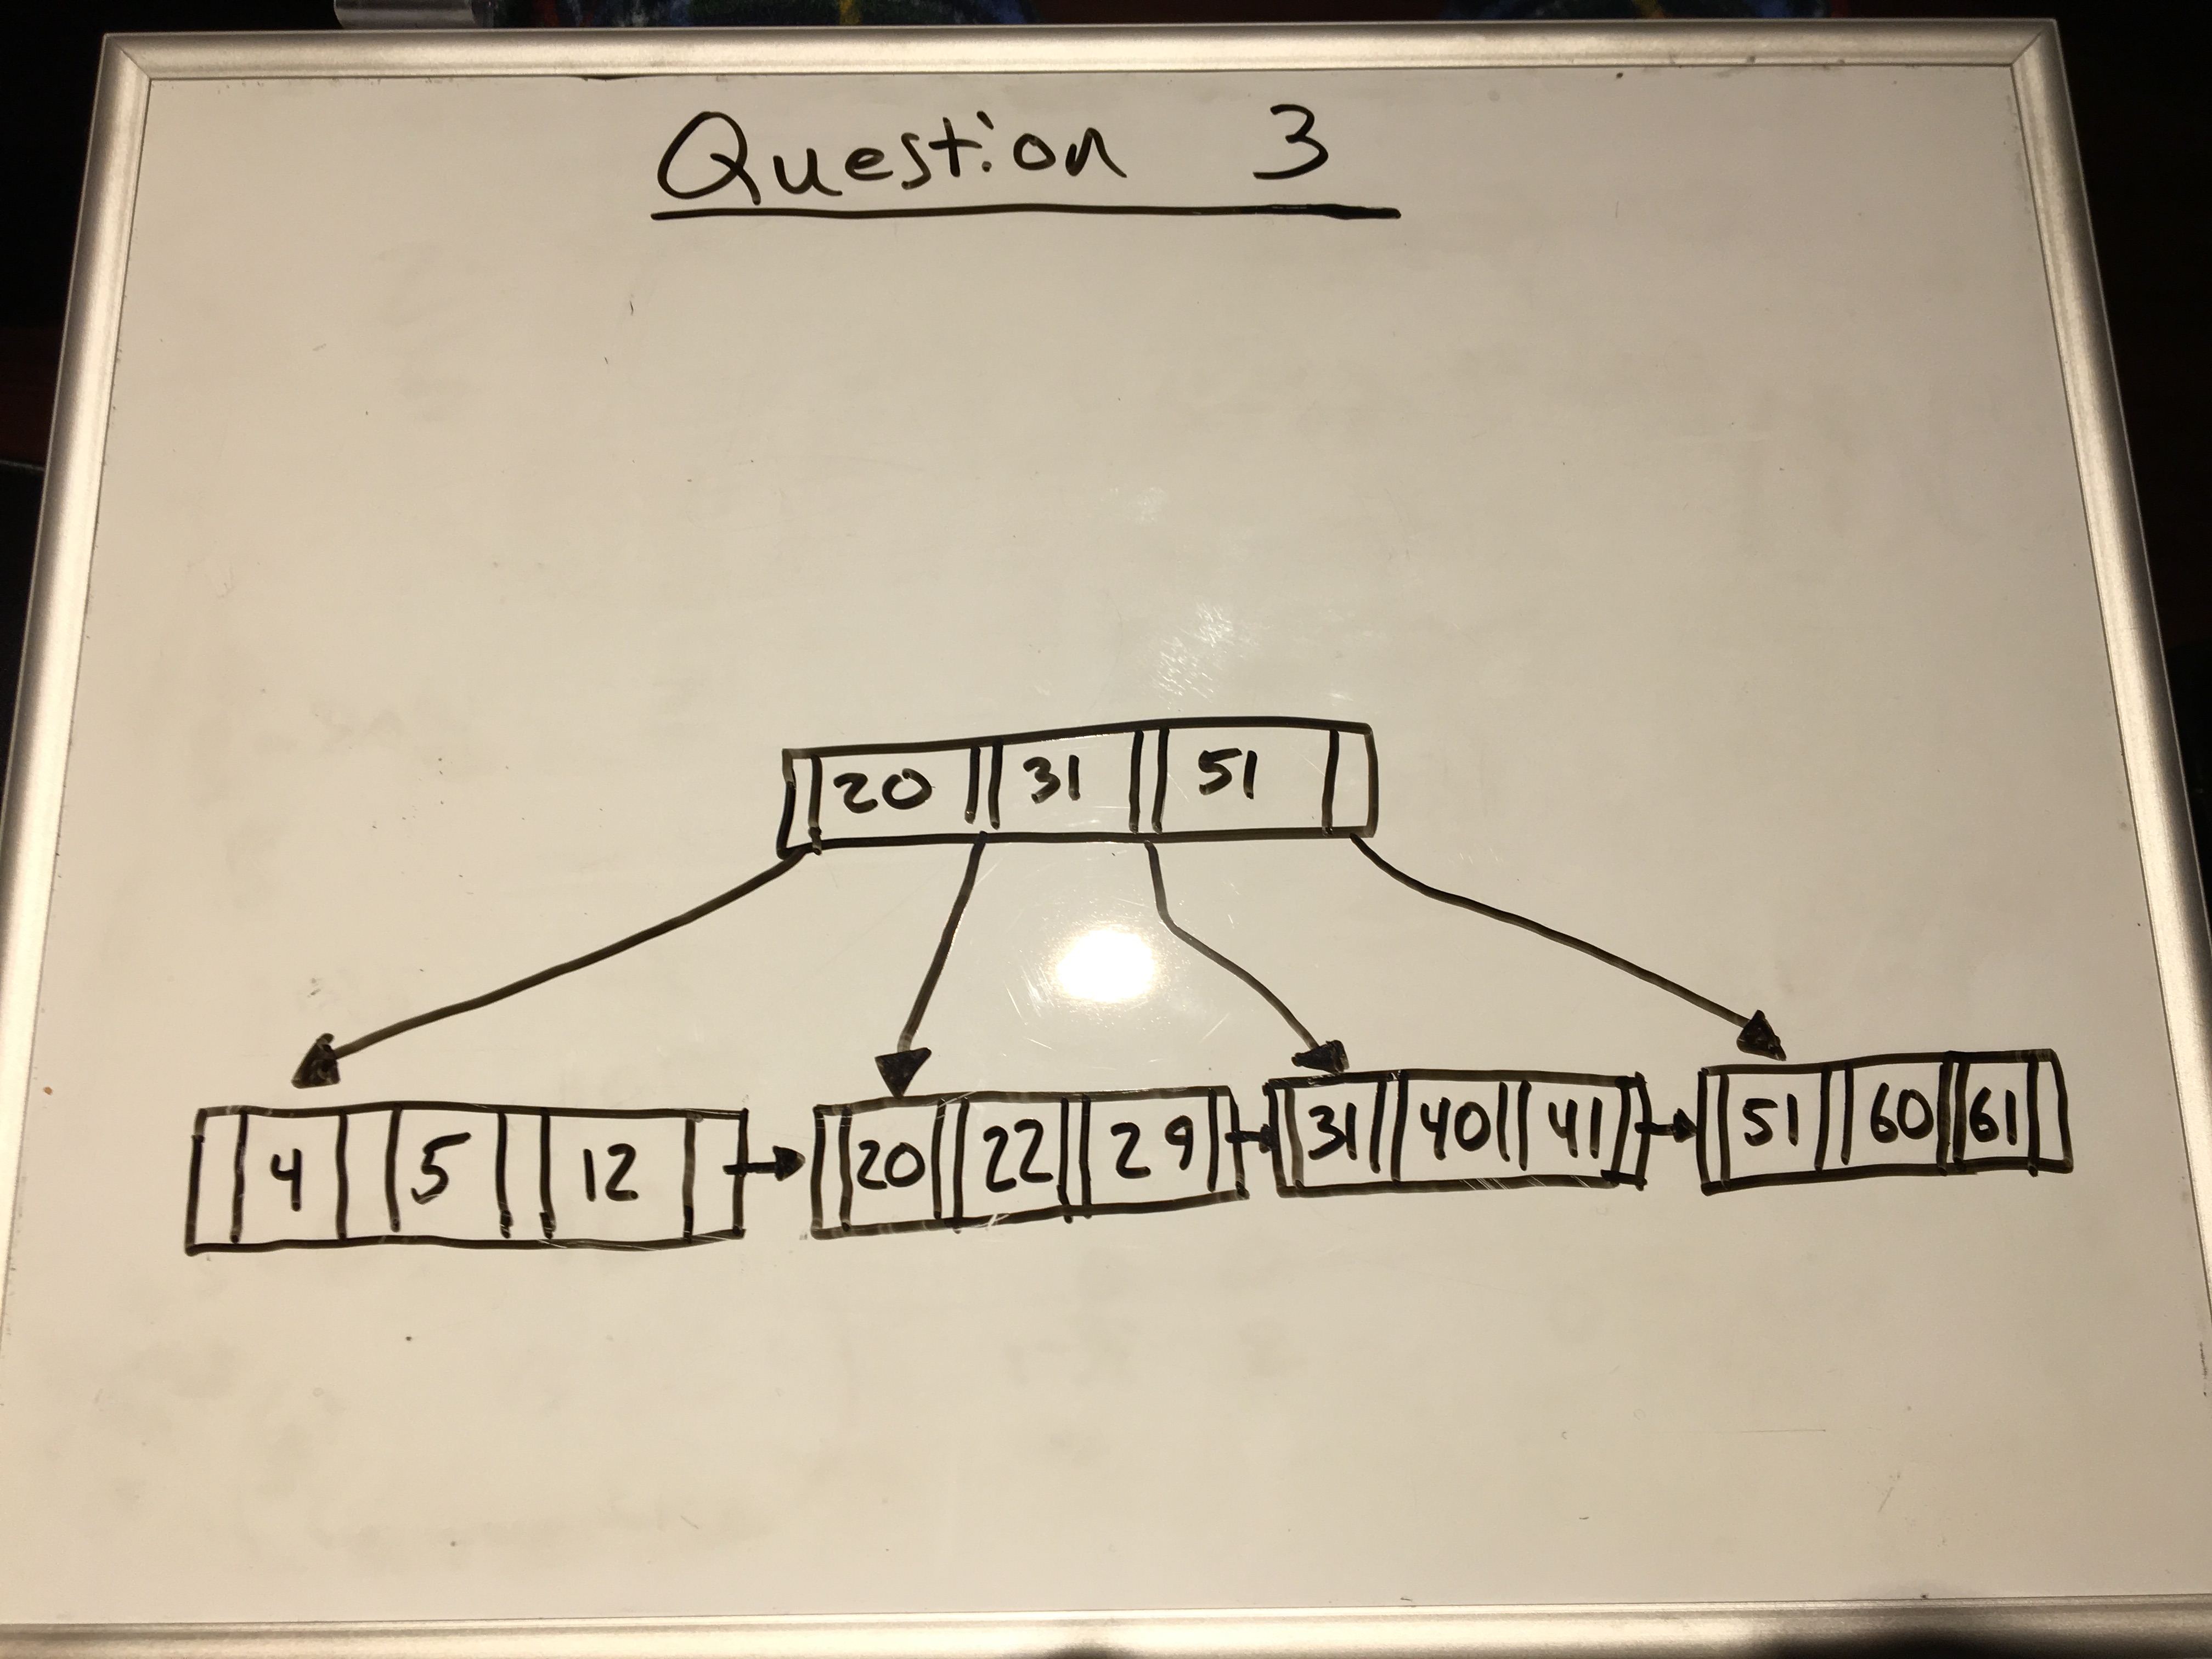 Question 3
20 31 51
4 5 12 20 22 29 31 40 41 51 60 61